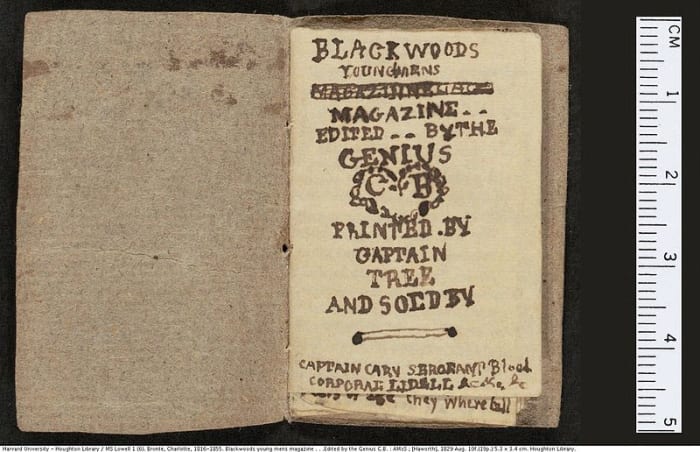 BLACKWOODS
YOUNGMENS
MAGAZINE..
EDITED.. BYTHE
GENIUS
C B
PRINTED.BY
CAPTAIN
TREE
AND SOLD BY
CAPTAIN CARY SERGEANT Blood
CORPORAL LIDELL &c &c &c
they Where
CM
1
2
3
4
5
Harvard University - Houghton Library / MS Lowell 1 (6). Bronte, Charlotte, 1816-1855. Blackwoods young mens magazine . . .Edited by the Genius C.B. : AMsS ; [Haworth], 1829 Aug. 10f.(19p.) 5.3 x 3.4 cm. Houghton Library.